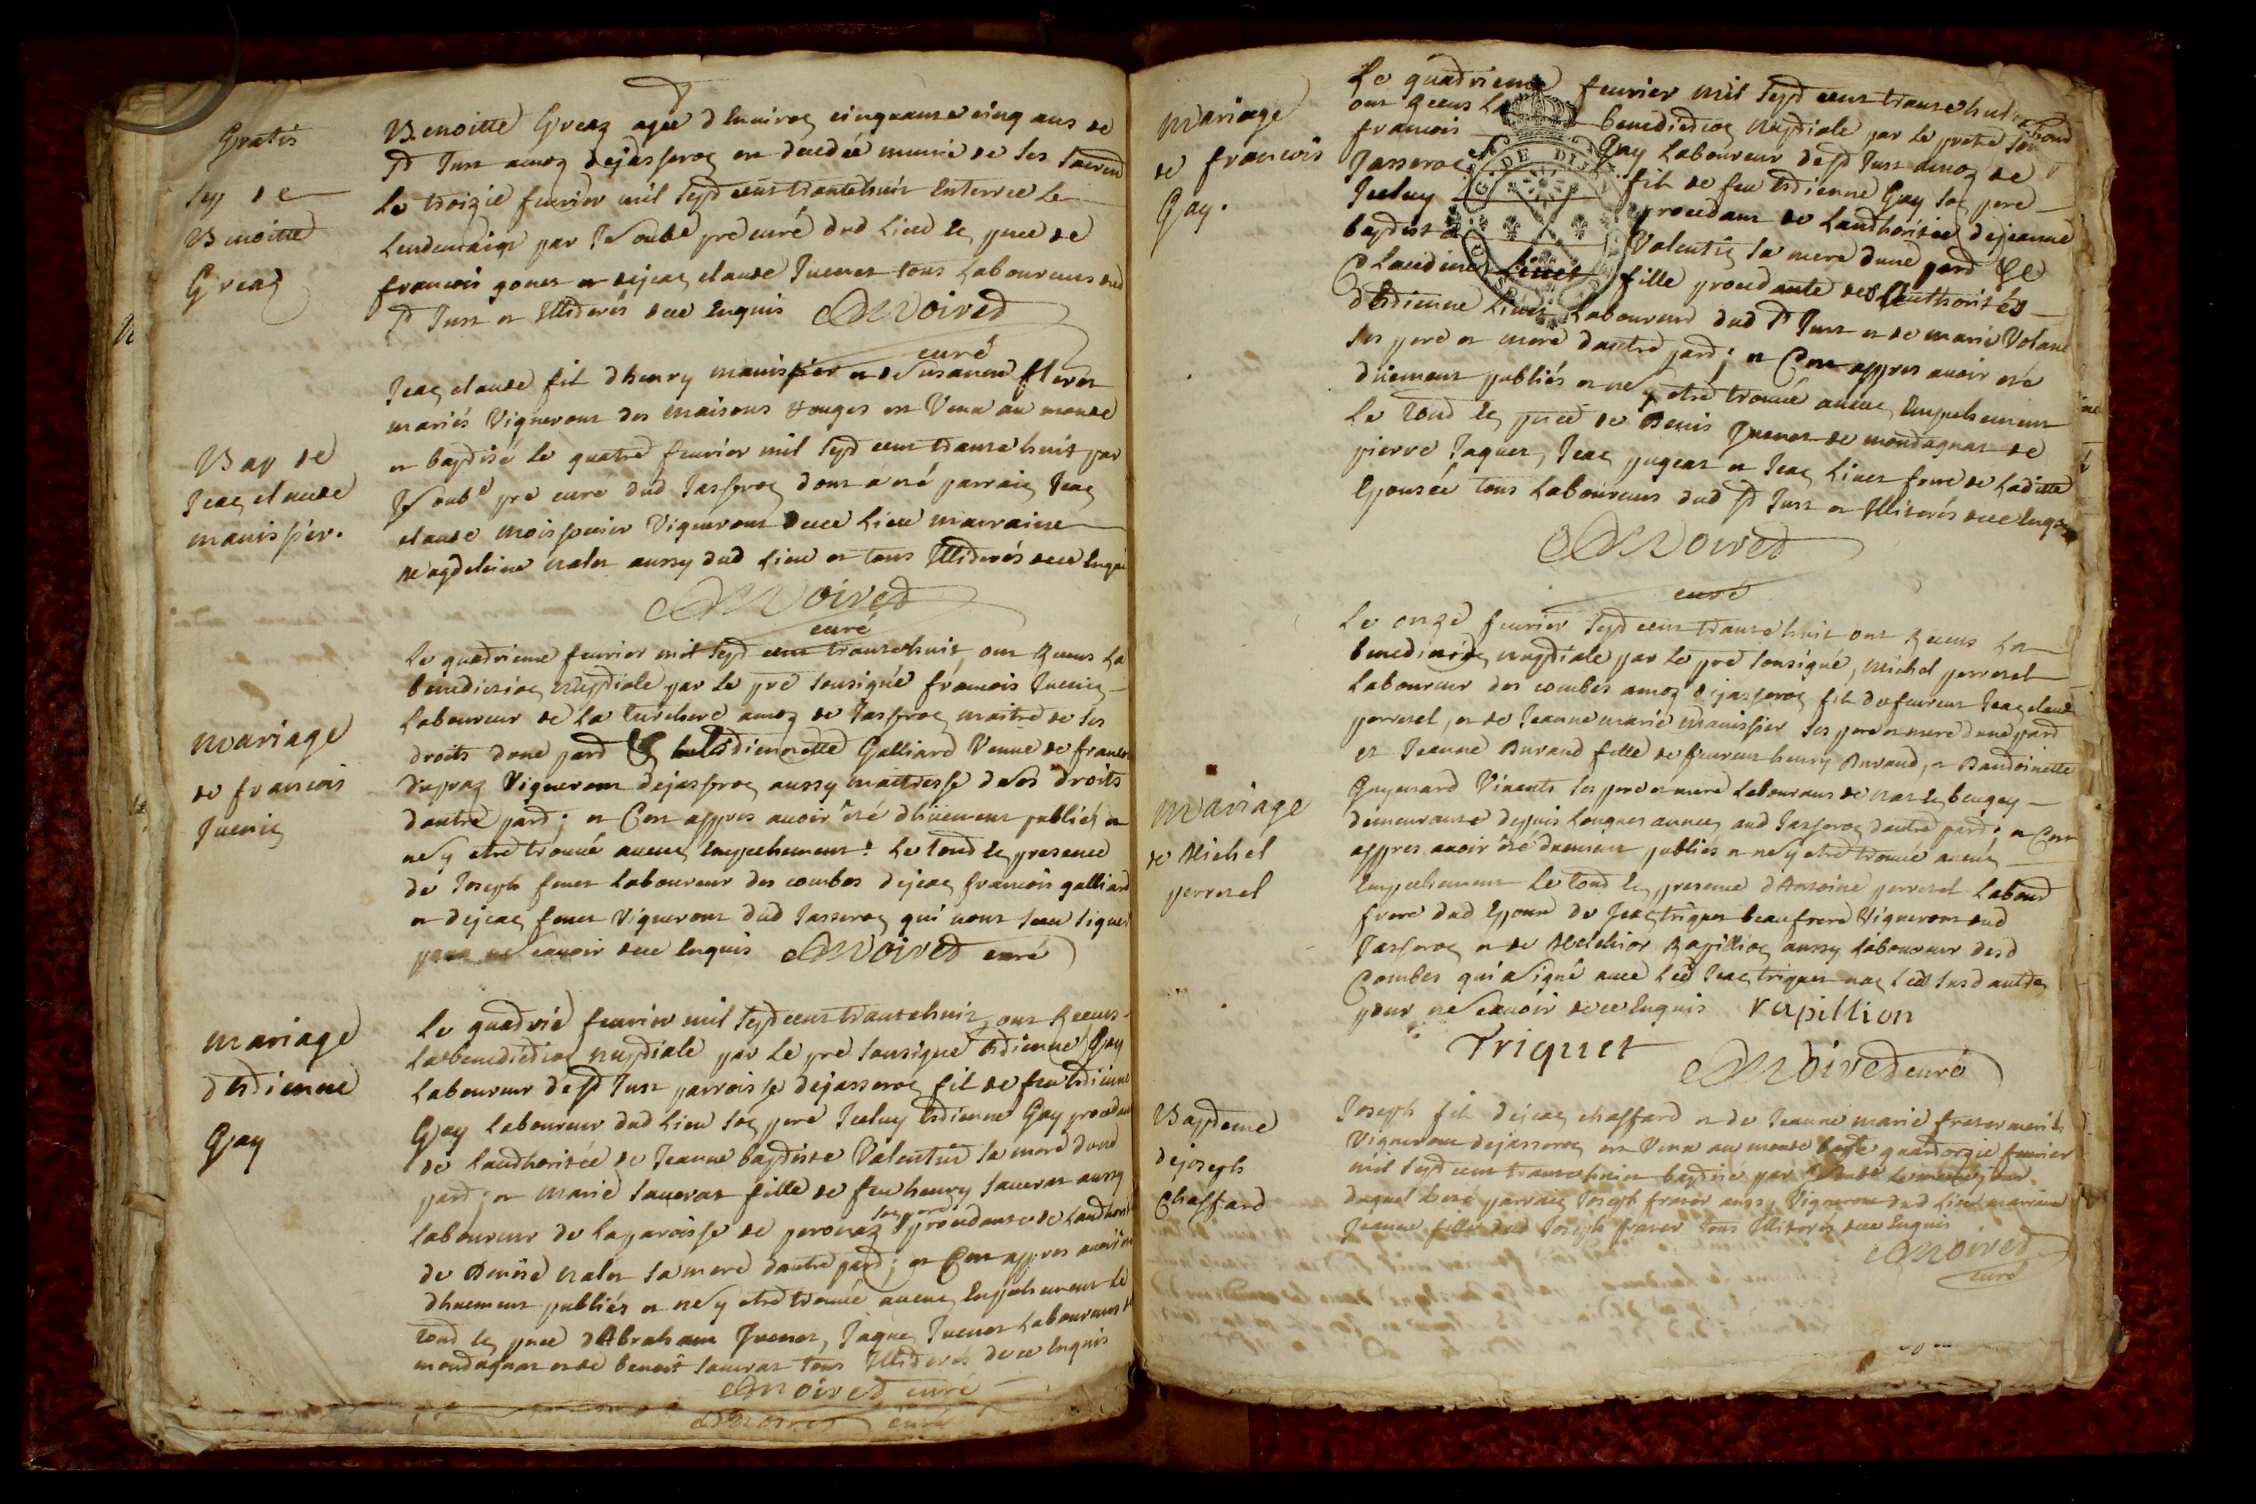 Gratis
Sep de
Benoitte
Greaz
Benoitte Greaz agée d'Environ cinquante cinq ans de
St Just amon dejasseron est decedée munie de ses sacrem
Le troizie fevrier mil sept cent trante huit Enterree le
Lendemain par Je soubé pre curé dud Lieu En pnce de
francois gonet et dejean claude Juenet tous Laboureurs dud
St Just et Illiterés dece Enquis Noiret
curé
Bap de
Jean claude
manissier.
Jean claude fil d'henry manissier et de
mariés Vignerons des maisons rouges est Venu au monde
et baptisé le quatre fevrier mil sept cent trante huit par
Je soubé pre curé dud Jasseron dont a été parrain Jean
claude moissonier Vigneront dece Lieu marraine
magdeleine nalet aussy dud Lieu et tous Illiterés dece Enqui
Noiret
curé
Mariage
de francois
Juenin
Le quatrieme fevrier mil sept cent trantehuit, ont Receus La
benediction Nuptiale par Le pre sousigné francois Juenin
Laboureur de La Turchere amon de Jasseron maitre de ses
droits dune part Et Estiennette Galliard Veuve de francois
Dupraz Vigneront dejasseron aussy maitresse deses droits
dautre part; et Ce appres avoir été dhuement publiés et
nesy etre trouvé aucun Empechement. Le tout En presence
de Joseph fenet Laboureur des combes dejean francois galliard
et dejean fenet Vigneront dud Jasseron qui nont sceu signer
pour ne scavoir dece Enquis Noiret curé
Mariage
d'Estienne
Gay
Le quatrie fevrier mil sept cent trantehuit, ont Receus
La benediction nuptiale par Le pre sousigné Estienne Gay
Laboureur de St Just parroisse dejasseron fil de feu Estienne
Gay Laboureur dud Lieu son pere Iceluy Estienne Gay procedant
de Lauthorité de Jeanne baptiste Valentin sa mere dune
part; et marie sauvrat fille de feu henry sauvrat aussy
son pere
Laboureur de Laparoisse de peronaz procedante de Lauthorité
de Denise nalet sa mere dautre part; et Ce appres avoir été
dhuement publiés et nesy etre trouvé aucun Empechement Le
tout En pnce d'Abraham Juenet, Jaque Juenet Laboureurs de
montagnat et de benoit sauvrat tous Illiterés dece Enquis
Noiret curé
Noiret curé
Mariage
de francois
Gay.
Le quatrieme fevrier mil sept cent trante huit
ont Receus La benediction Nuptiale par le pretre
francois Gay Laboureur de St Just amon de
Jasseron fil de feu Estienne Gay son pere
Iceluy procedant de Lauthorité dejeanne
baptiste Valentin sa mere dune part Et
Claudine Livet fille procedante des authorités
d'Estienne Livet Laboureur dud St Just et de marie Volant
ses pere et mere dautre part; et Ce appres avoir été
duement publiés et nesy etre trouvé aucun Empechement
Le tout En pnce de Denis Juenet de montagnat de
pierre Jaquet, Jean pugeat et Jean Livet frere de Laditte
Epousée tous Laboureurs dud St Just et Illiterés dece Enquis
Noiret
curé
Mariage
de Michel
perrosel
Le onze fevrier sept cent trante huit ont Receus La
benediction nuptiale par Le pre sousigné, Michel perrosel
Laboureur des combes amon dejasseron fil de feu Jean claude
perrosel, et de Jeanne marie manissier ses pere et mere dune part
et Jeanne Durand fille de feu henry Durand, et
Vivants ses pere et mere Laboureurs de
demeurante depuis Longues années aud Jasseron dautre part; et Ce
appres avoir été duement publiés et nesy etre trouvé aucun
Empechement Le tout En presence d'Antoine perrosel Labour
frere dud Epoux de Jean triquet beaufrere Vigneront dud
Jasseron et de Melchior Rapillion aussy Laboureur desd
Combes qui a signé avec Led Jean triquet non Led susd
pour nescavoir dece Enquis rapillion
Triquet
Noiret curé
Bapteme
dejoseph
Chaffard
Joseph fil dejean chaffard et de Jeanne marie frerer mariés
Vigneront dejasseron est Venu au monde Le quatorzie fevrier
mil sept cent trantehuit et baptisé par Le meme jour
duquel parrain Joseph frerer aussy Vigneront dud Lieu marraine
Jeanne fille dud Joseph frerer tous Illiterés dece Enquis
Noiret
curé